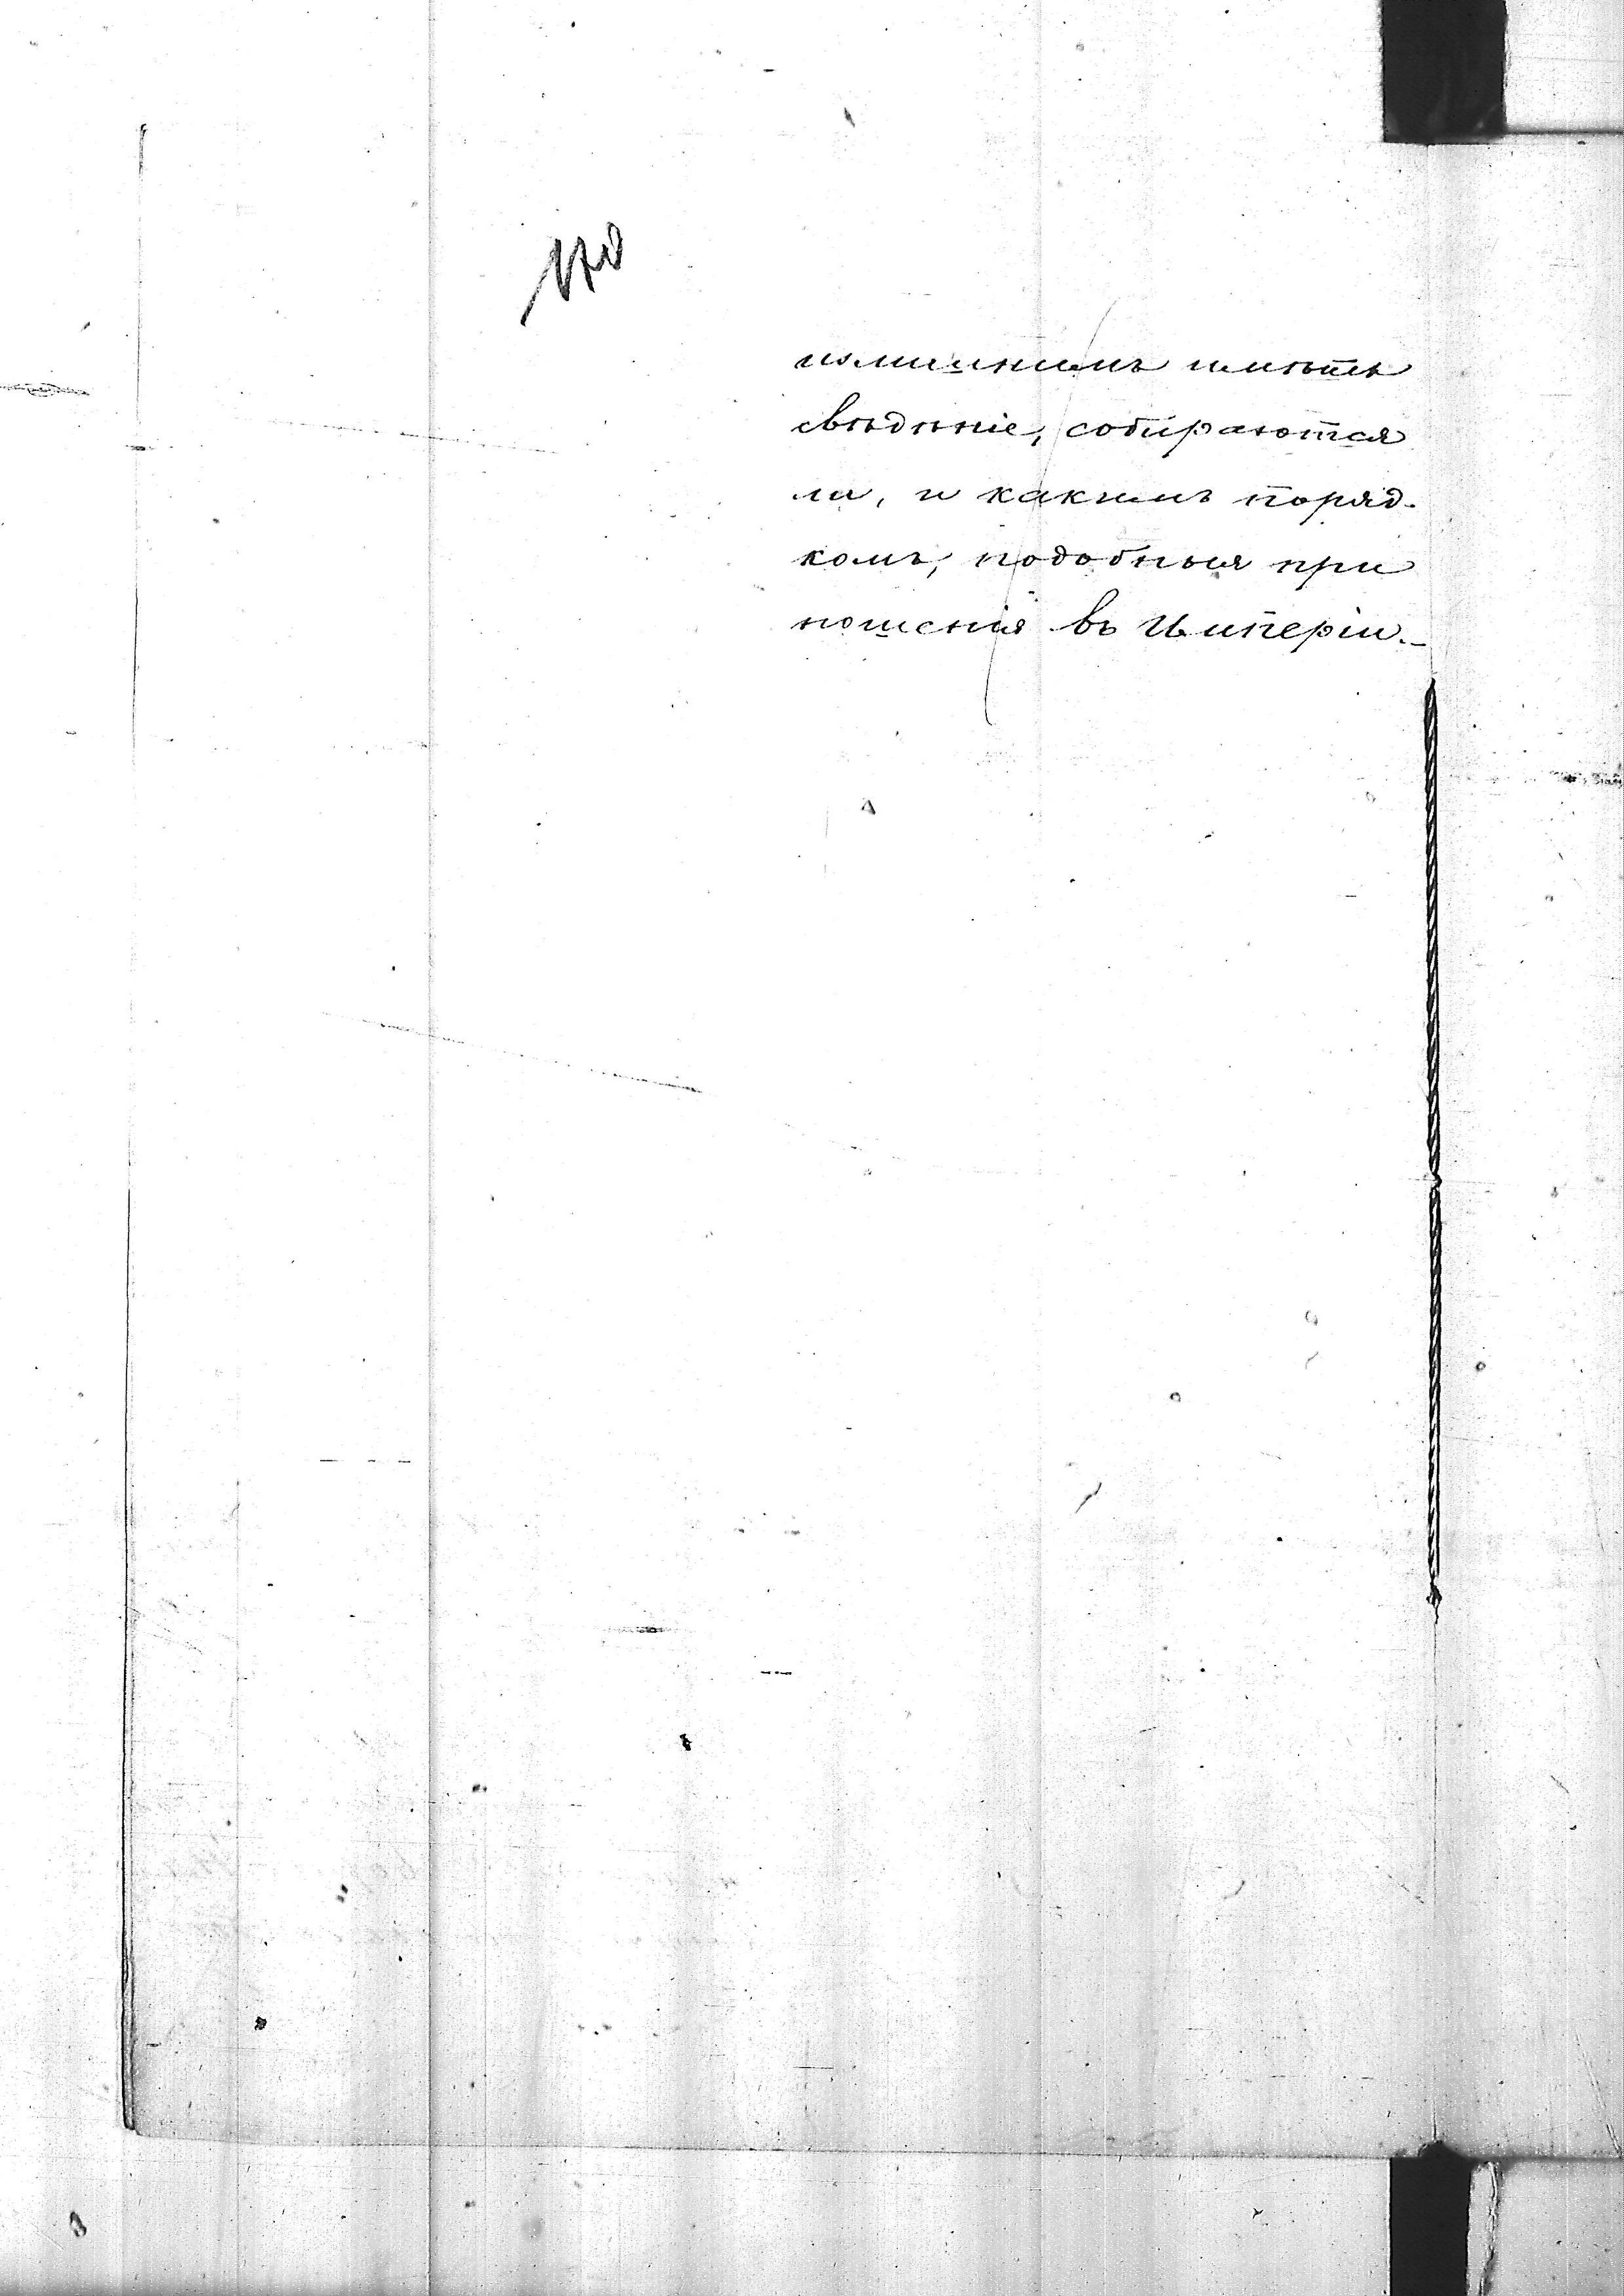 170
излишнимъ имѣть
свѣдѣніе, собираются
ли, и какимъ поряд-
комъ, подобныя при
ношенія въ Имперіи.-